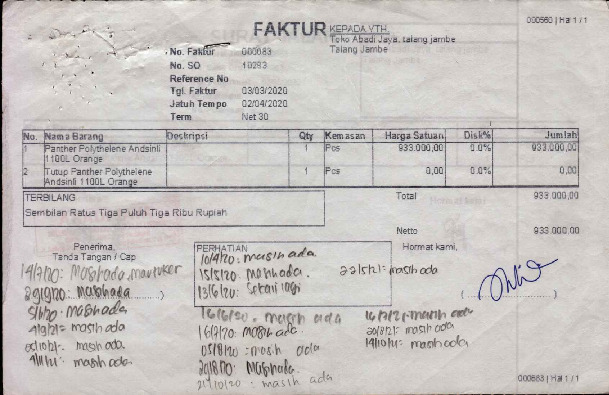 000563 | Hal 1 / 1
FAKTUR
KEPADA YTH.
Toko Abadi Jaya, talang jambe
Talang Jambe
No. Faktur 000083
No. SO 10293
Reference No
Tgl. Faktur 03/03/2020
Jatuh Tempo 02/04/2020
Term Net 30
No. Nama Barang Deskripsi Qty Kemasan Harga Satuan Disk% Jumlah
1 Panther Polythelene Andsinli 1 Pcs 933.000,00 0.0% 933.000,00
1100L Orange
2 Tutup Panther Polythelene 1 Pcs 0,00 0.0% 0,00
Andsinli 1100L Orange
TERBILANG
Sembilan Ratus Tiga Puluh Tiga Ribu Rupiah
Total 933.000,00
Netto 933.000,00
Penerima,
Tanda Tangan / Cap
PERHATIAN
Hormat kami,
masih ada
29/9/20: masih ada
masih ada
4/9/21= masih ada
05/10/21= masih ada
masih ada
10/4/20: masih ada
15/5/20: masih ada.
13/6/20: Sekali lagi
16/6/20. masih ada
16/7/20: masih ada.
05/8/20 = masih ada
29/8/20: masih ada.
21/10/20: masih ada
22/5/21= masih ada
masih ada
20/8/21= masih ada
19/10/21= masih ada
000563 | Hal 1 / 1